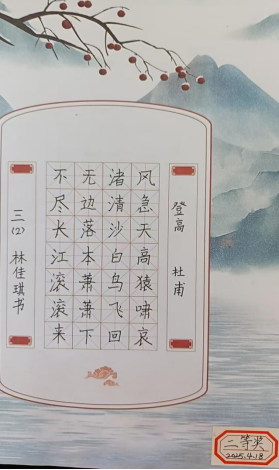 登高 杜甫
风急天高猿啸哀
渚清沙白鸟飞回
无边落本萧萧下
不尽长江滚滚来
三(2) 林佳琪书
二等奖
2025.4.18